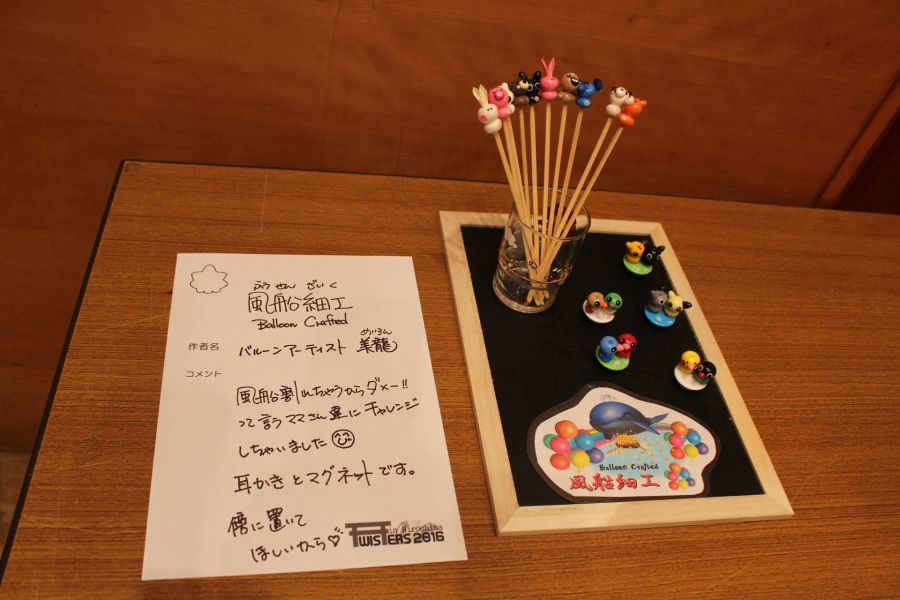 ふうせん ざいく
風船細工
Balloon Crafted
作者名
バルーンアーティスト 美龍
めいろん
コメント
風船割れちゃうからダメー!!
って言うママさん達にチャレンジ
しちゃいました
耳かきとマグネットです。
傍に置いて
ほしいから♡
in Hiroshima
TWISTERS 2016
Balloon Crafted
風船細工